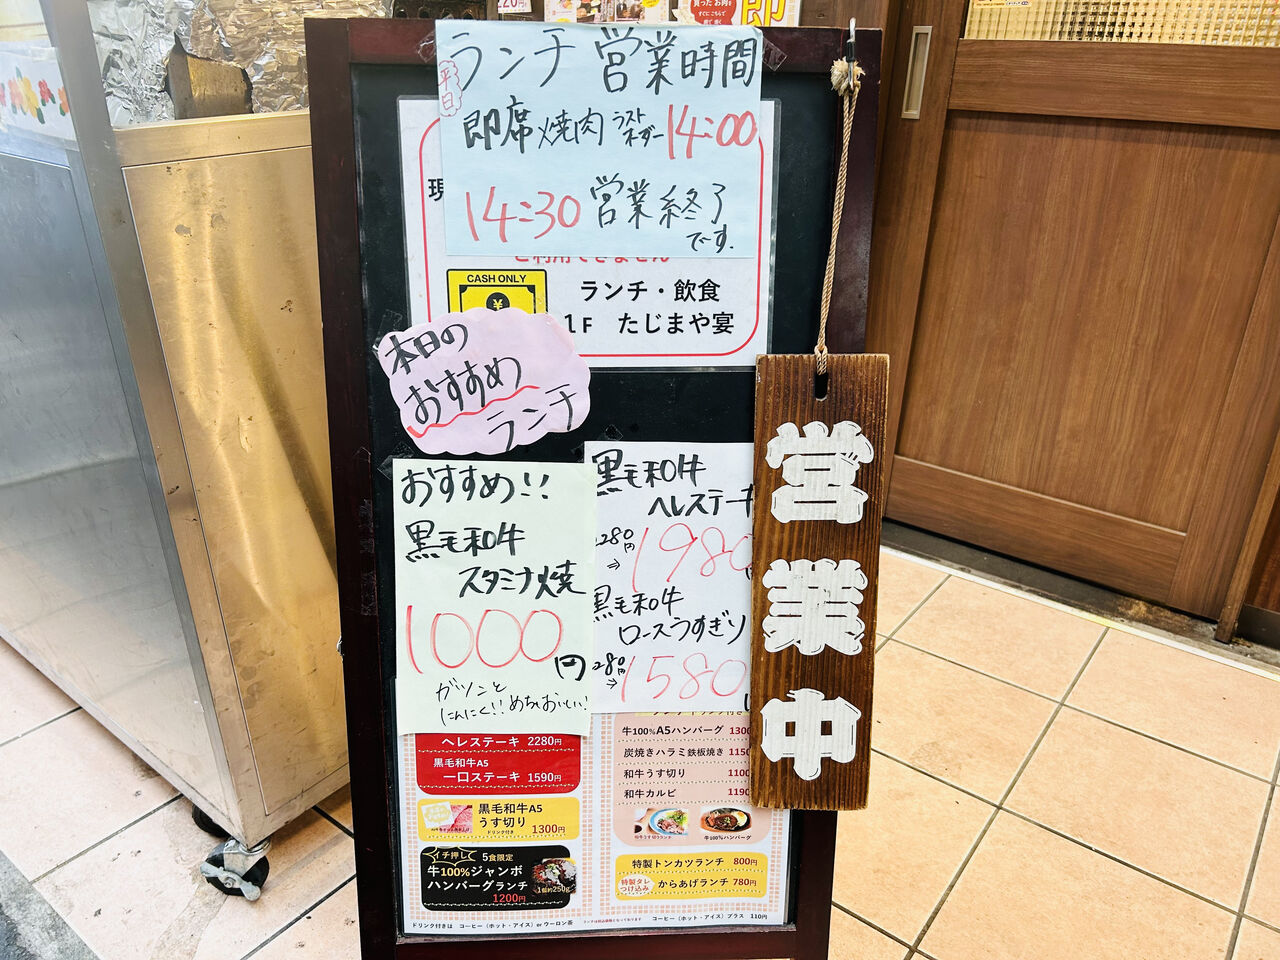 ランチ 営業時間
平日
即席焼肉 ラストオーダー 14:00
14:30 営業終了
です.
現
ご利用できません
CASH ONLY
¥
ランチ・飲食
1F たじまや宴
本日の
おすすめ
ランチ
おすすめ!!
黒毛和牛
スタミナ焼
1000円
ガツンと
にんにく!!めちゃおいしい!
黒毛和牛
ヘレステーキ
2280円
→1980
黒毛和牛
ロースうすぎり
→1580
営業中
ヘレステーキ 2280円
黒毛和牛A5
一口ステーキ 1590円
黒毛和牛A5
うす切り
ドリンク付き 1300円
イチ押し 5食限定
牛100%ジャンボ
ハンバーグランチ
1200円
1個約250g
牛100%A5ハンバーグ 1300
炭焼きハラミ鉄板焼き 1150
和牛うす切り 1100
和牛カルビ 1190
和牛うす切りランチ
牛100%ハンバーグ
特製トンカツランチ 800円
特製タレ
つけ込み
からあげランチ 780円
ドリンク付きは コーヒー(ホット・アイス)or ウーロン茶
コーヒー(ホット・アイス)プラス 110円